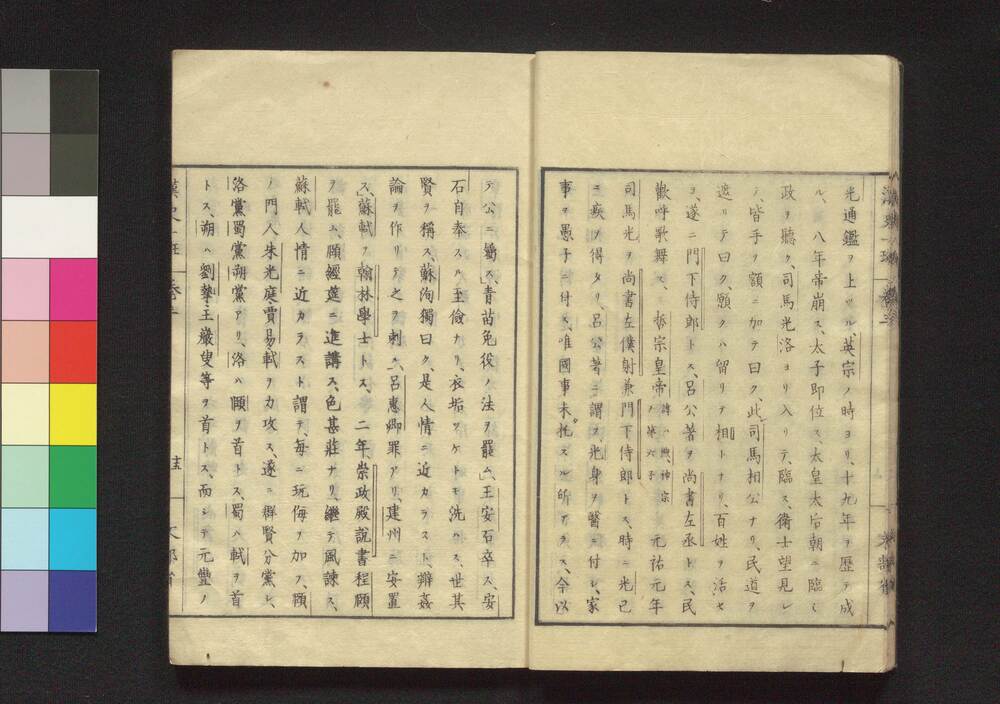 光通鑑ヲ上ツル、英宗ノ時ヨリ、十九年ヲ歴テ成
ル、八年帝崩ス、太子即位ス、太皇太后朝ニ臨ミ
政ヲ聽ク、司馬光洛ヨリ入リテ、臨ス、衛士望見シ
テ、皆手ヲ額ニ加テ曰ク、此司馬相公ナリ、民道ヲ
遮リテ曰ク、願クハ留リテ相トナリ、百姓ヲ活セ
ヨ、遂ニ門下侍郎トス、呂公著ヲ尚書左丞トス、民
歡呼歌舞ス、哲宗皇帝諱ハ煦、神宗ノ第六子元祐元年
司馬光ヲ尚書左僕射兼門下侍郎トス、時ニ光已
ニ疾ヲ得タリ、呂公著ニ謂ス、光身ヲ醫ニ付シ、家
事ヲ愚子ニ付ス、唯國事未。托スル所アラス、今以
テ公ニ屬ス、青苗免役ノ法ヲ罷ム、王安石卒ス、安
石自奉スル至儉ナリ、衣垢ツケトモ洗ハス、世其
賢ヲ稱ス、蘇洵獨曰ク、是人情ニ近カラスト、辯姦
論ヲ作リテ之ヲ刺ス、呂惠卿罪アリ、建州ニ安置
ス、蘇軾ヲ翰林學士トス、二年、崇政殿說書程頤
ヲ罷ム、頤經莚ニ進講ス、色甚莊ナリ、繼テ風諫ス、
蘇軾人情ニ近カラスト謂テ、毎ニ玩侮ヲ加フ、頤
ノ門人朱光庭、賈易、軾ヲ力攻ス、遂ニ群賢分黨シ、
洛黨蜀黨朔黨アリ、洛ハ頤ヲ首トス、蜀ハ軾ヲ首
トス、朔ハ劉摯、王巖叟等ヲ首トス、而シテ元豐ノ
漢史一班 卷二 十三 文部省